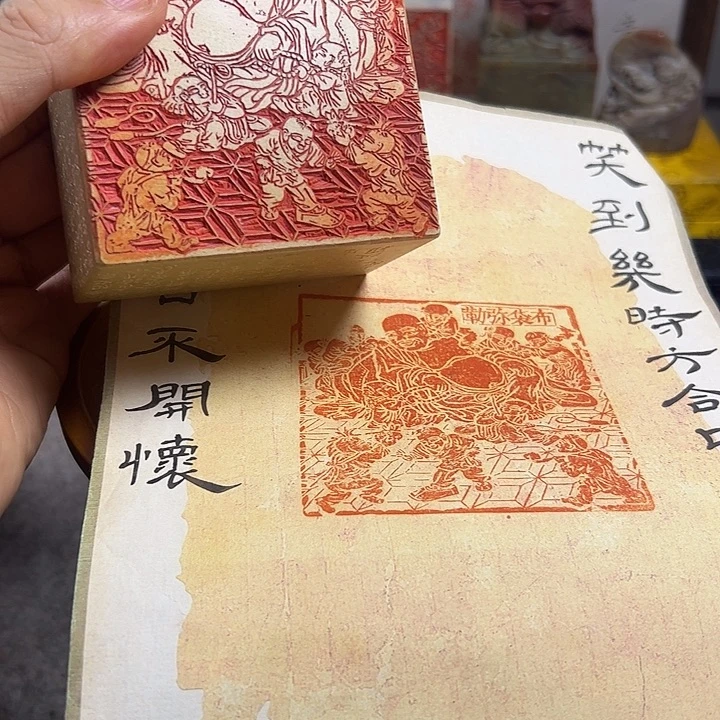 笑到幾時方合口
日不開懷
布袋弥勒